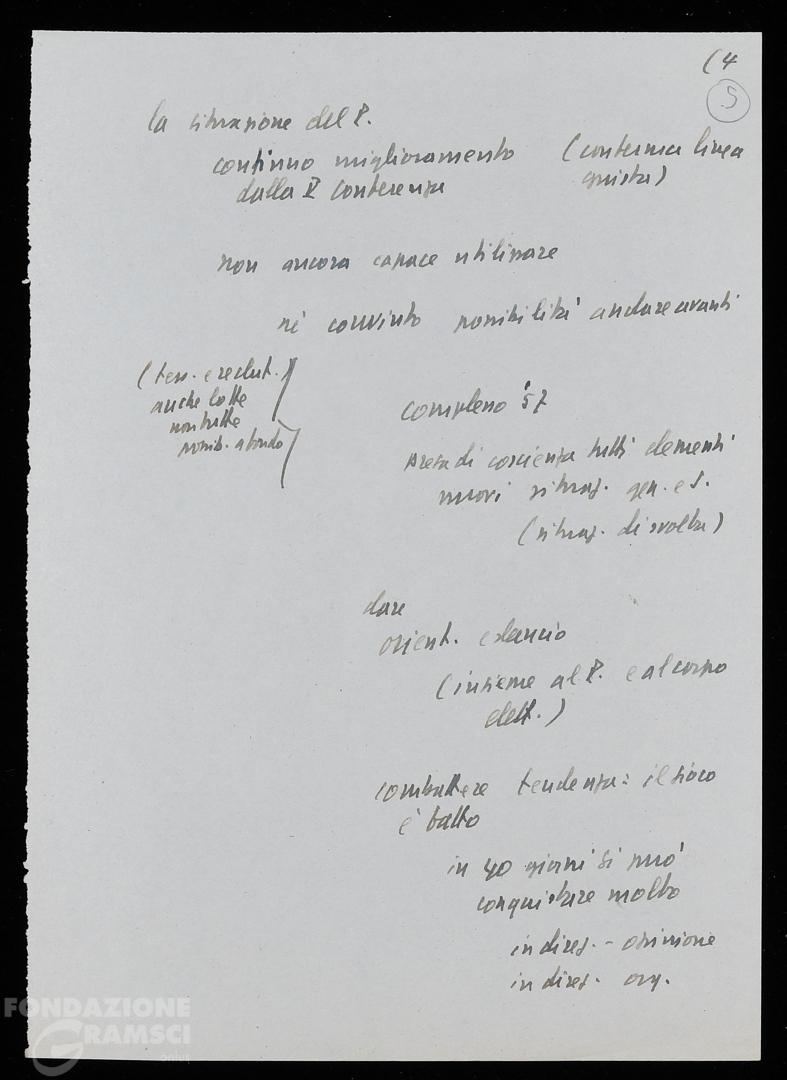 (4
5
la situazione del P.
continuo miglioramento (conferma linea
dalla V Conferenza giusta)
non ancora capace utilizzare
nè convinto possibilità andare avanti
(tess. e reclut.)
anche lotte
non tutte
possib. a fondo
complesso '57
presa di coscienza tutti elementi
nuovi situaz. gen. e s.
(situaz. di svolta)
dare
orient. e slancio
(insieme al P. e al corpo
elett.)
combattere tendenza: il gioco
è fatto
in 40 giorni si può
conquistare molto
in direz. - opinione
in direz. org.
FONDAZIONE
GRAMSCI
onlus